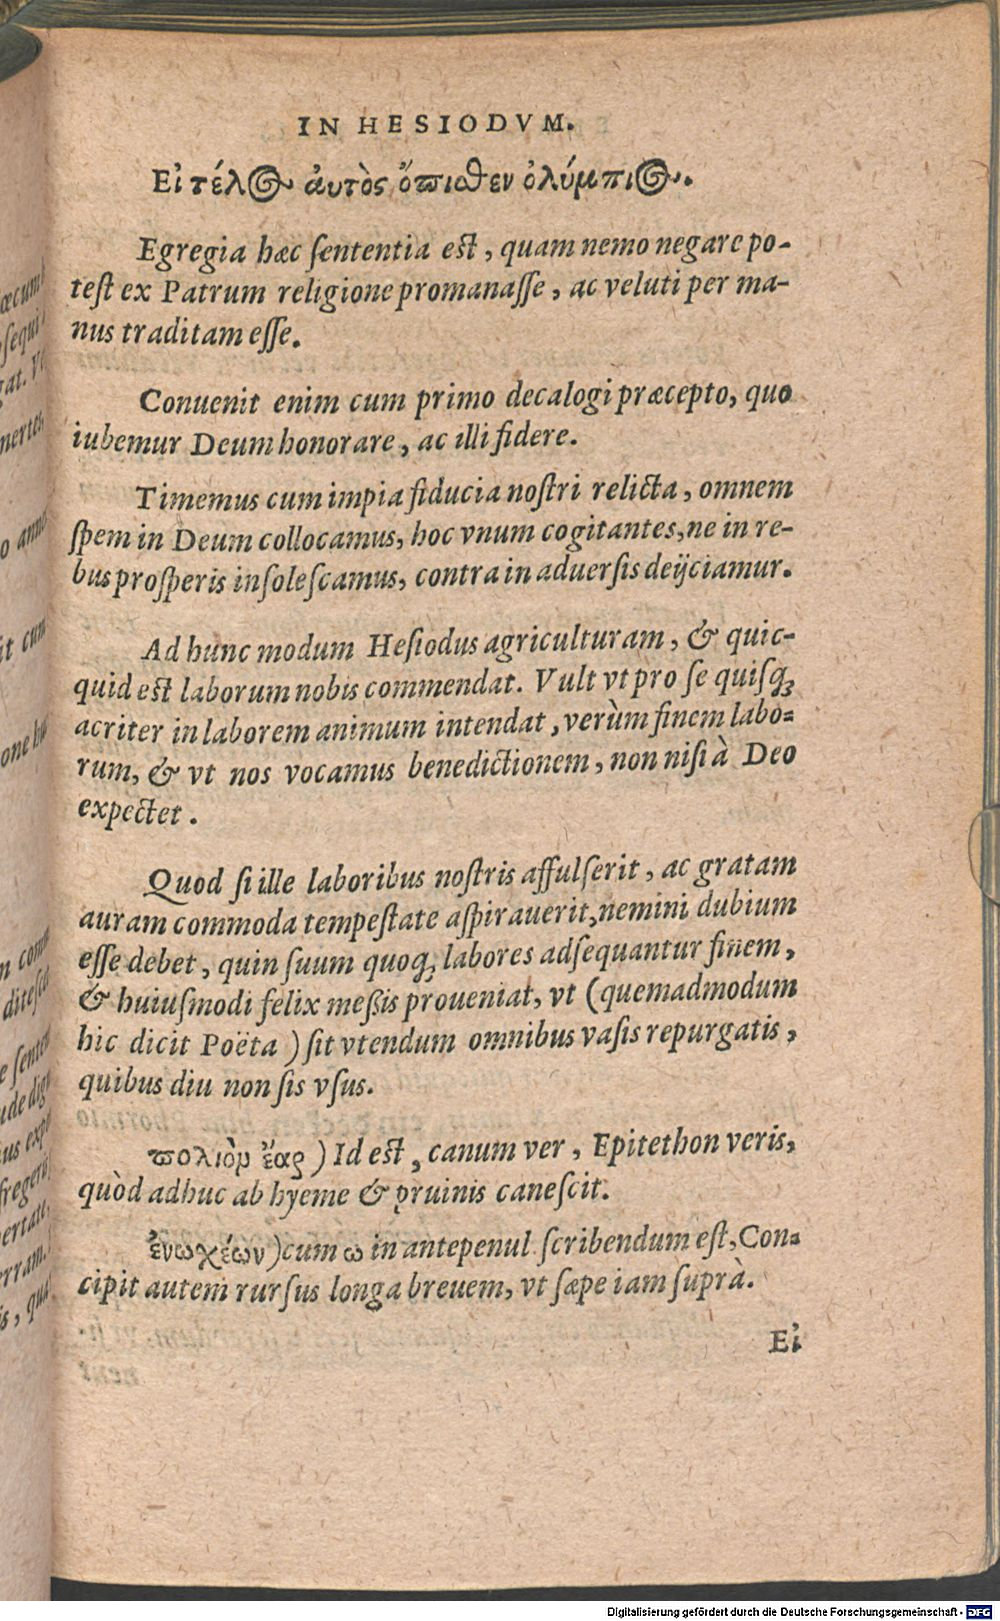 IN HESIODVM.
Εἰ τέλος ἀυτὸς ὄπιθεν ὀλύμπιος.
Egregia hæc ſententia est, quam nemo negare po-
test ex Patrum religione promanaſſe, ac veluti per ma-
nus traditam eſſe.
Conuenit enim cum primo decalogi præcepto, quo
iubemur Deum honorare, ac illi fidere.
Timemus cum impia fiducia noſtri relicta, omnem
ſpem in Deum collocamus, hoc vnum cogitantes, ne in re-
bus proſperis inſoleſcamus, contra in aduerſis deijciamur.
Ad hunc modum Heſiodus agriculturam, & quic-
quid est laborum nobis commendat. Vult vt pro ſe quiſq;
acriter in laborem animum intendat, verùm finem labo-
rum, & vt nos vocamus benedictionem, non niſi à Deo
expectet.
Quod ſi ille laboribus noſtris affulſerit, ac gratam
auram commoda tempeſtate aſpirauerit, nemini dubium
eſſe debet, quin ſuum quoq; labores adſequantur finem,
& huiuſmodi felix meßis proueniat, vt (quemadmodum
hic dicit Poëta) ſit vtendum omnibus vaſis repurgatis,
quibus diu non ſis vſus.
πολιὸν ἔαρ) Id est, canum ver, Epitethon veris,
quòd adhuc ab hyeme & pruinis caneſcit.
ἐνωχέων) cum ω in antepenul. ſcribendum eſt, Con-
cipit autem rurſus longa breuem, vt ſæpe iam ſuprà.
Εἰ
æcum
ſequi
gat. V
o anno
it cum
n com
diteſc
e ſenten
ude dig
us exp
fregeri
ertati
rram.
is, qua
Digitalisierung gefördert durch die Deutsche Forschungsgemeinschaft - DFG